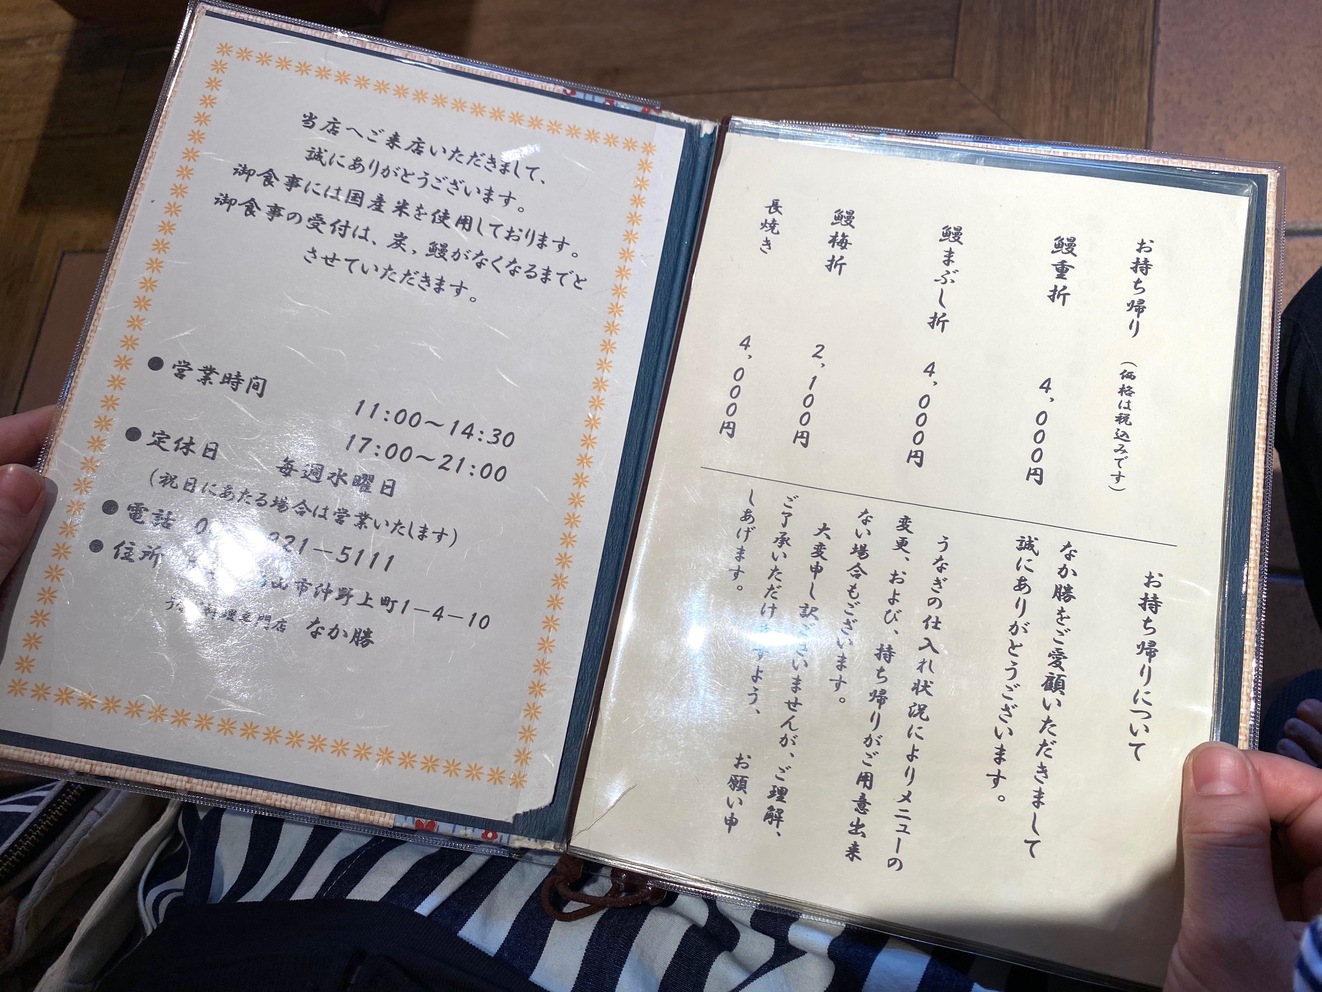 当店へご来店いただきまして、
誠にありがとうございます。
御食事には国産米を使用しております。
御食事の受付は、炭、鰻がなくなるまでと
させていただきます。
●営業時間
11:00～14:30
17:00～21:00
●定休日 毎週水曜日
(祝日にあたる場合は営業いたします)
●電話 221－5111
●住所 山市仲野上町1－4－10
料理専門店 なか勝
お持ち帰り (価格は税込みです)
鰻重折 4,000円
鰻まぶし折 4,000円
鰻梅折 2,100円
長焼き 4,000円
お持ち帰りについて
なか勝をご愛顧いただきまして
誠にありがとうございます。
うなぎの仕入れ状況によりメニューの
変更、および、持ち帰りがご用意出来
ない場合もございます。
大変申し訳ございませんが、ご理解、
ご了承いただけますよう、 お願い申
しあげます。